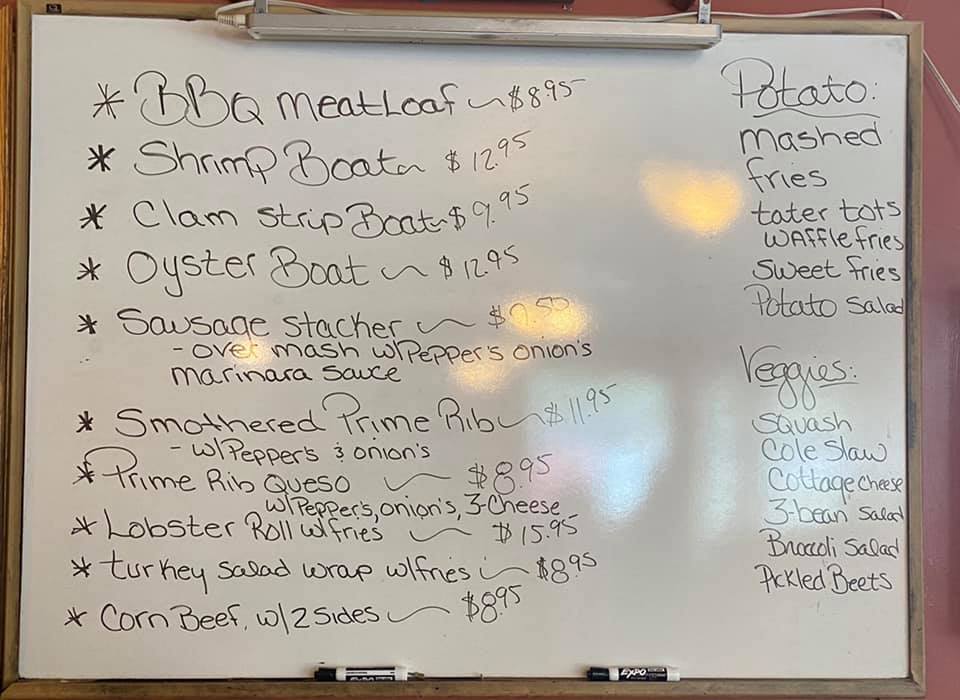 * BBQ Meatloaf ~ $8.95
* Shrimp Boat ~ $12.95
* Clam Strip Boat ~ $9.95
* Oyster Boat ~ $12.95
* Sausage Stacker ~ $9.50
- over mash w/Pepper's onion's
marinara sauce
* Smothered Prime Rib ~ $11.95
- w/Pepper's & onion's
* Prime Rib Queso ~ $8.95
w/Pepper's, onion's, 3-Cheese
* Lobster Roll w/fries ~ $15.95
* turkey salad wrap w/fries ~ $8.95
* Corn Beef, w/2 Sides ~ $8.95
Potato:
mashed
fries
tater tots
waffle fries
Sweet fries
Potato Salad
Veggies:
Squash
Cole Slaw
Cottage Cheese
3-bean Salad
Broccoli Salad
Pickled Beets
EXPO
EXPO